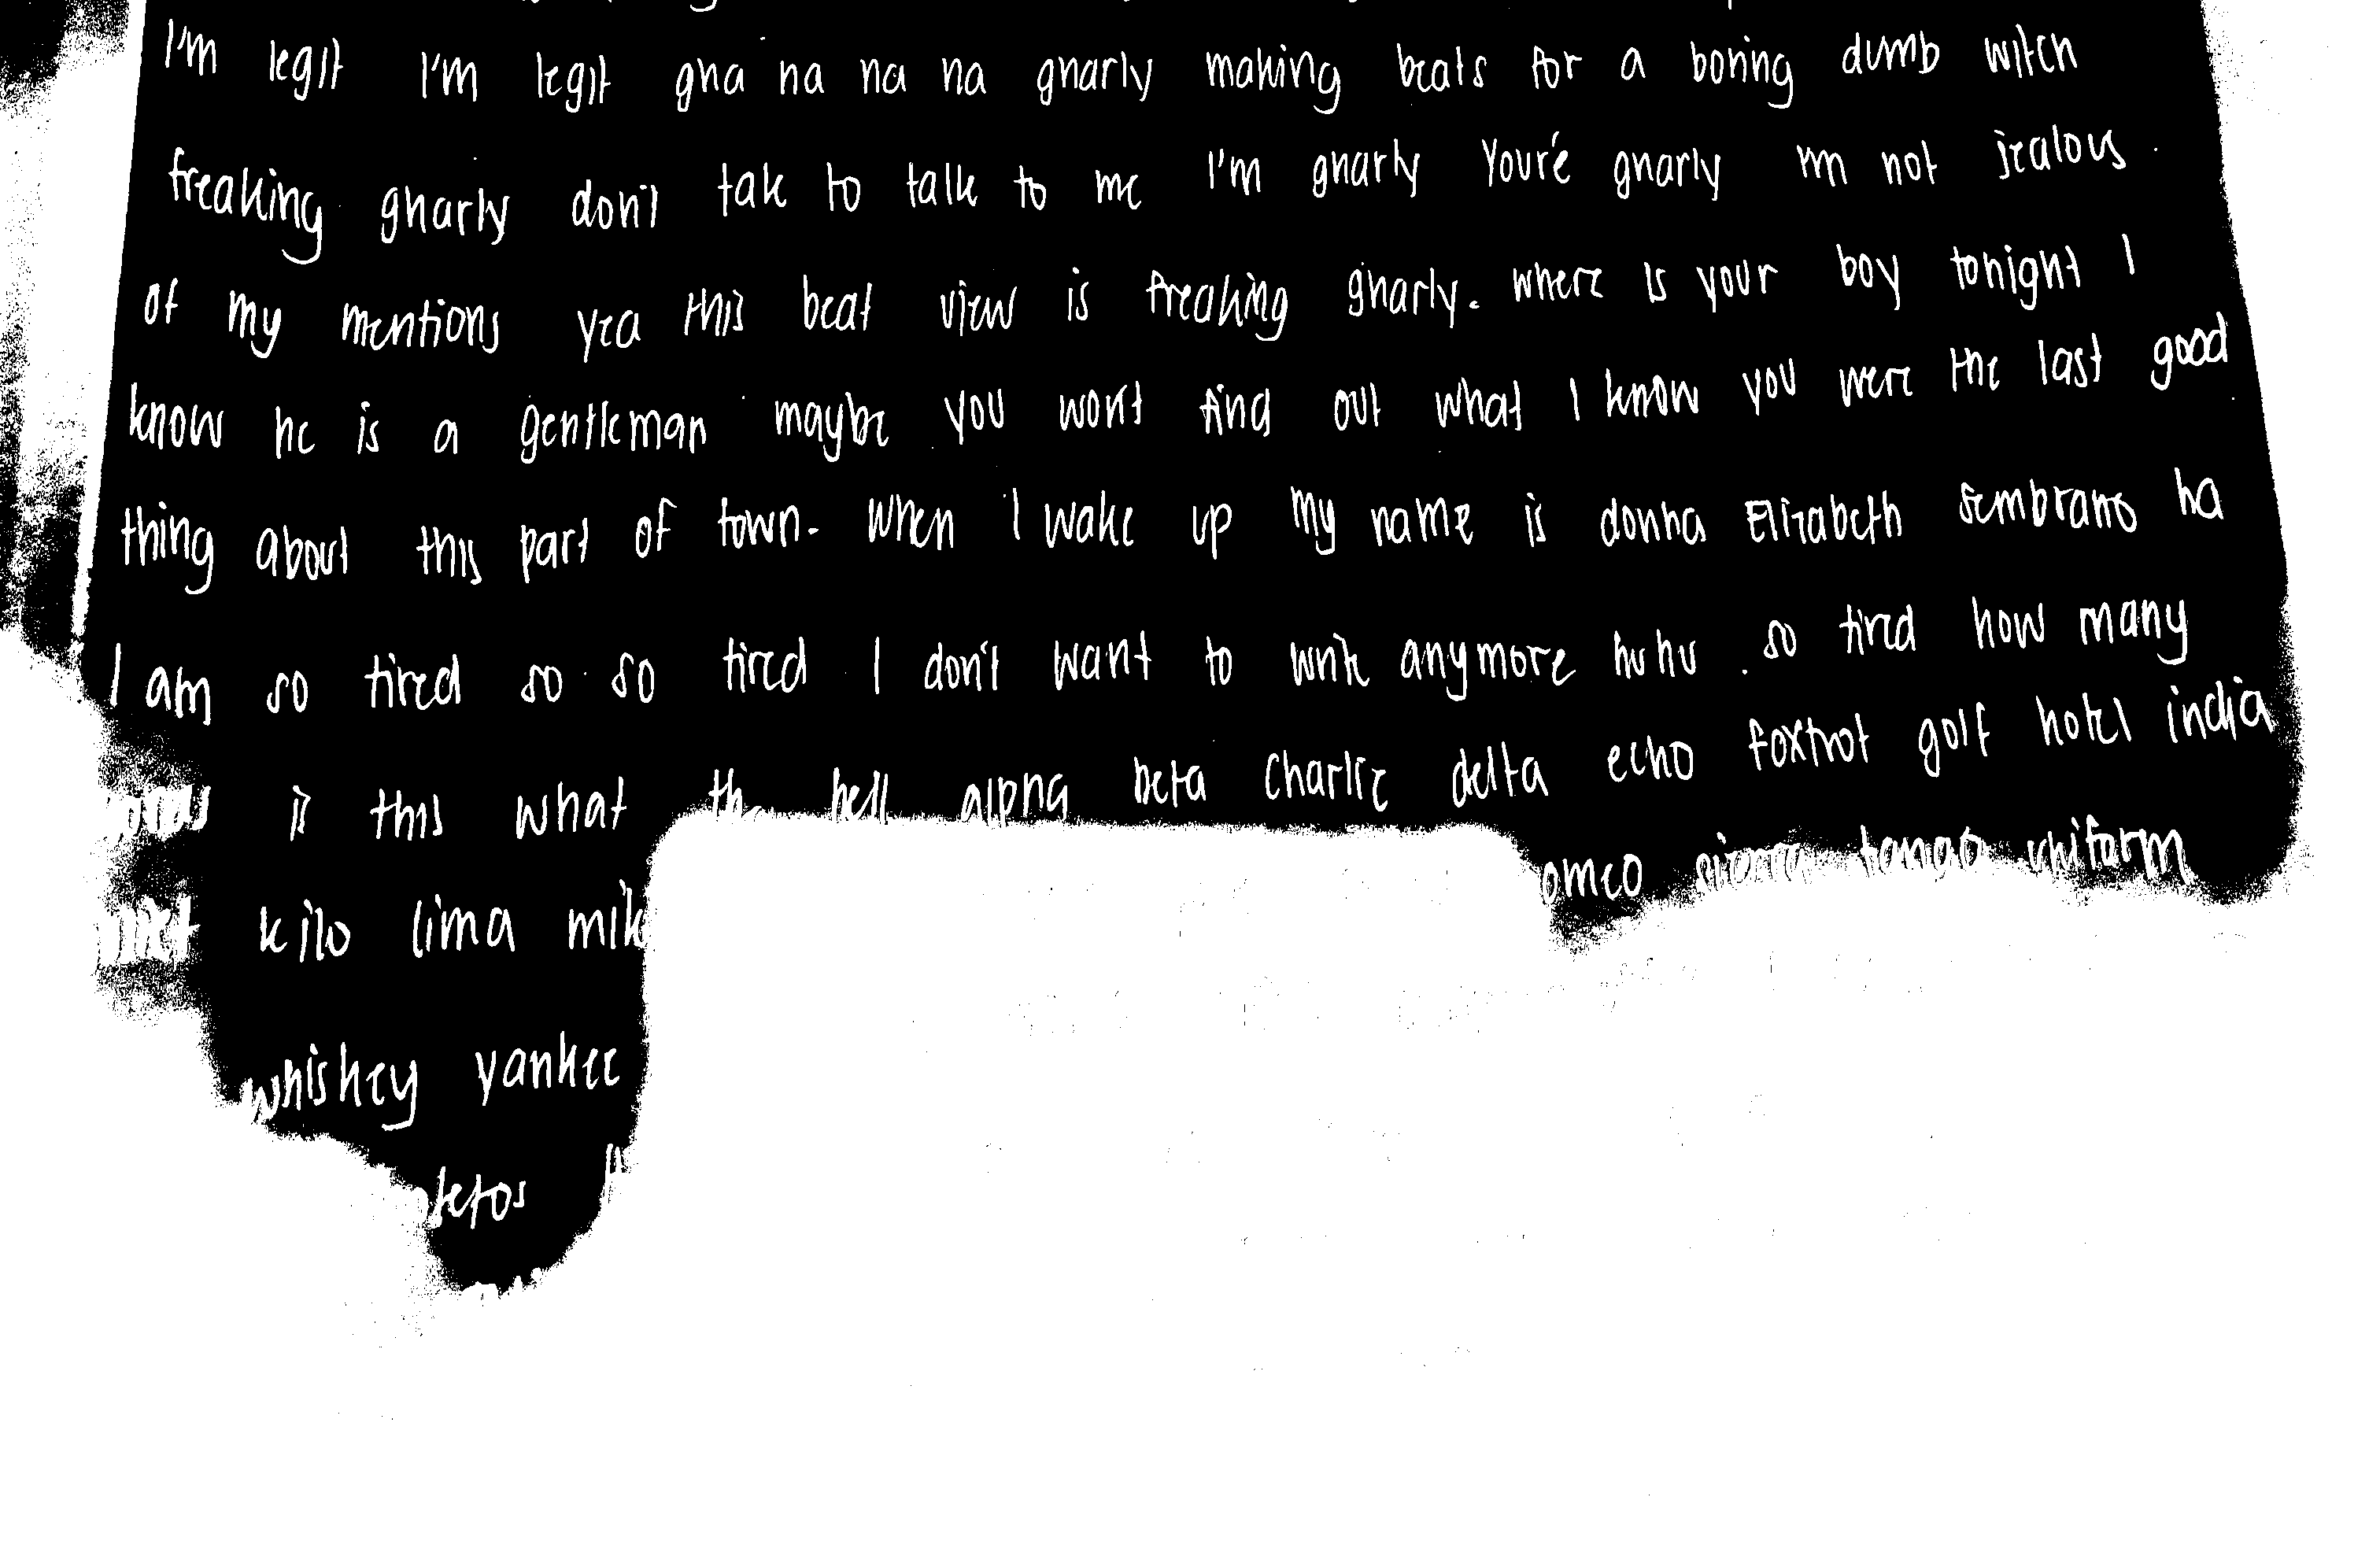 I'm legit I'm legit gna na na na gnarly making beats for a boring dumb witch
freaking gnarly don't tak to talk to me I'm gnarly Your'e gnarly im not jealous.
of my mentions yea this beat view is freaking gnarly. where is your boy tonight I
know he is a gentleman maybe you wont find out what I know you were the last good
thing about this part of town. When I wake up my name is donna Elizabeth Sembrano ha
I am so tired so so tired I don't want to write anymore hu hu. so tired how many
words is this what the hell alpha beta Charlie delta echo foxtrot golf hotel india
kilo lima mik omeo sierra tango uniform
whiskey yankee